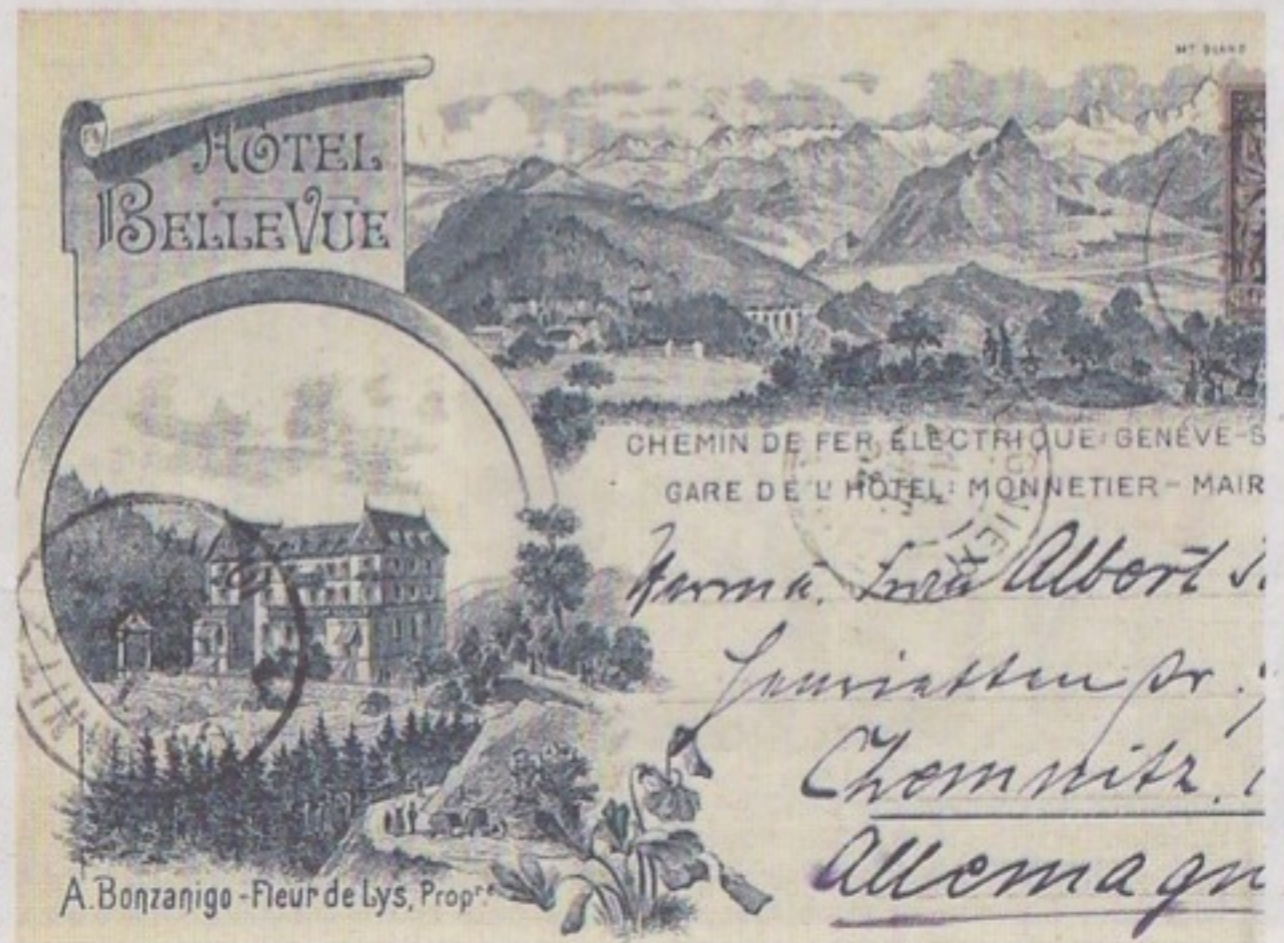 MT BLANC
HÔTEL
BELLEVUE
CHEMIN DE FER ÉLECTRIQUE: GENÈVE-S
GARE DE L'HÔTEL: MONNETIER-MAIR
Frau Albert
Henrietten str.
Chemnitz.
Allemagn
A. Bonzanigo-Fleur de Lys, Propre